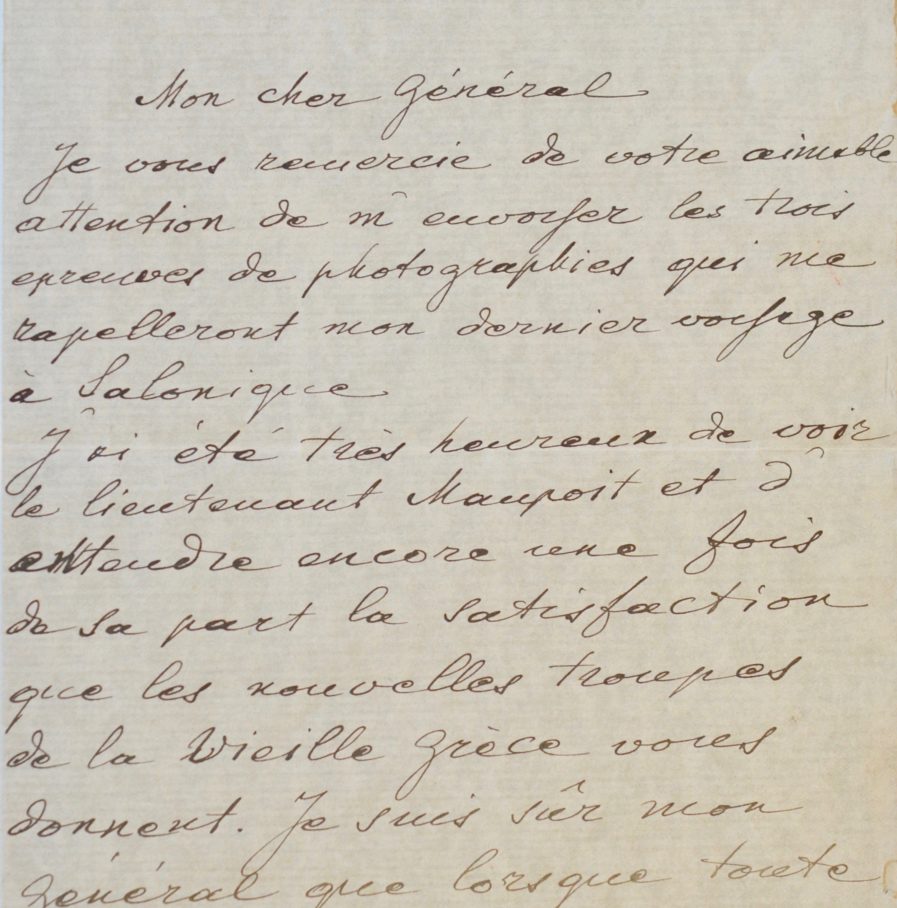 Mon cher Général
Je vous remercie de votre aimable
attention de m'envoyer les trois
epreuves de photographies qui me
rapelleront mon dernier voyage
à Salonique
J'ai été très heureux de voir
le lieutenant Maupoit et d'
entendre encore une fois
de sa part la satisfaction
que les nouvelles troupes
de la Vieille Grèce vous
donnent. Je suis sûr mon
Général que lorsque toute